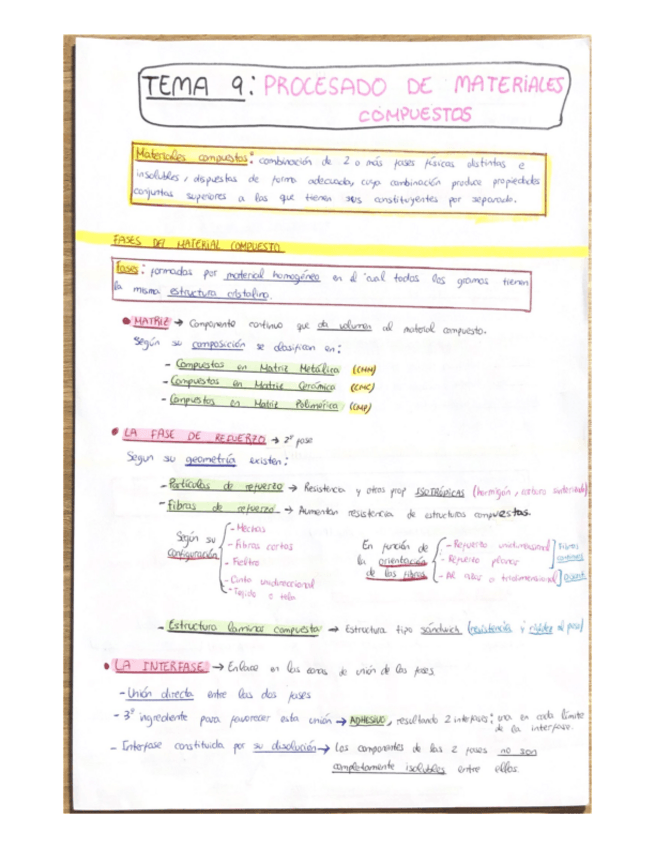 TEMA 9: PROCESADO DE MATERIALES
COMPUESTOS
Materiales compuestos: combinación de 2 o más fases físicas distintas e
insolubles, dispuestas de forma adecuada, cuya combinación produce propiedades
conjuntas superiores a las que tienen sus constituyentes por separado.
FASES DEL MATERIAL COMPUESTO
Fases: formadas por material homogéneo en el cual todos los granos tienen
la misma estructura cristalina.
• MATRIZ → Componente continuo que da volumen al material compuesto.
Según su composición se clasifican en:
- Compuestos en Matriz Metálica (CMM)
- Compuestos en Matriz Cerámica (CMC)
- Compuestos en Matriz Polimérica (CMP)
• LA FASE DE REFUERZO → 2ª fase
Segun su geometría existen:
- Partículas de refuerzo → Resistencia y otras prop ISOTRÓPICAS (hormigón, carburo sinterizado)
- Fibras de refuerzo → Aumentan resistencia de estructuras compuestas.
Según su configuración
- Mechas
- Fibras cortas
- Fieltro
- Cinta unidireccional
- Tejido o tela
En función de
la orientación
de las fibras
- Refuerzo unidimensional
- Refuerzo planar
- Al azar o tridimensional
Fibras
continuas
- Estructura laminar compuesta → Estructura tipo sándwich (resistencia y rigidez al peso)
• LA INTERFASE → Enlace en las zonas de unión de las fases
- Unión directa entre las dos fases
- 3º ingrediente para favorecer esta unión → ADHESIVO, resultando 2 interfases: una en cada límite
de la interfase.
- Interfase constituida por su disolución → Los componentes de las 2 fases no son
completamente isolubles entre ellos.